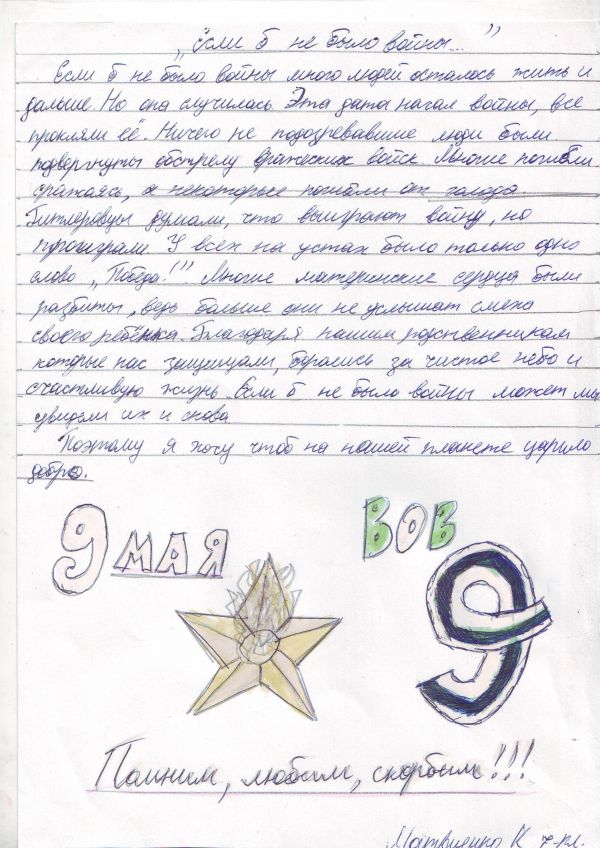 „Если б не было войны..."
Если б не было войны много людей осталось жить и
дальше. Но она случилась. Эта дата начал войны, все
прокляли её. Ничего не подозревавшие люди были
подвергнуты обстрелу вражеских войск. Многие погибли
сражаясь, а некоторые погибли от голода.
Гитлеровцы думали, что выиграют войну, но
проиграли. У всех на устах было только одно
слово „Победа!". Многие материнские сердца были
разбиты, ведь больше они не услышат смеха
своего ребёнка. Благодаря нашим родственникам
которые нас защищали, боролись за чистое небо и
счастливую жизнь. Если б не было войны может мы
увидели их и снова
Поэтому я хочу чтоб на нашей планете царило
добро.
9 МАЯ
ВОВ
9
Помним, любим, скорбим!!!
Матвиенко К 7-кл.